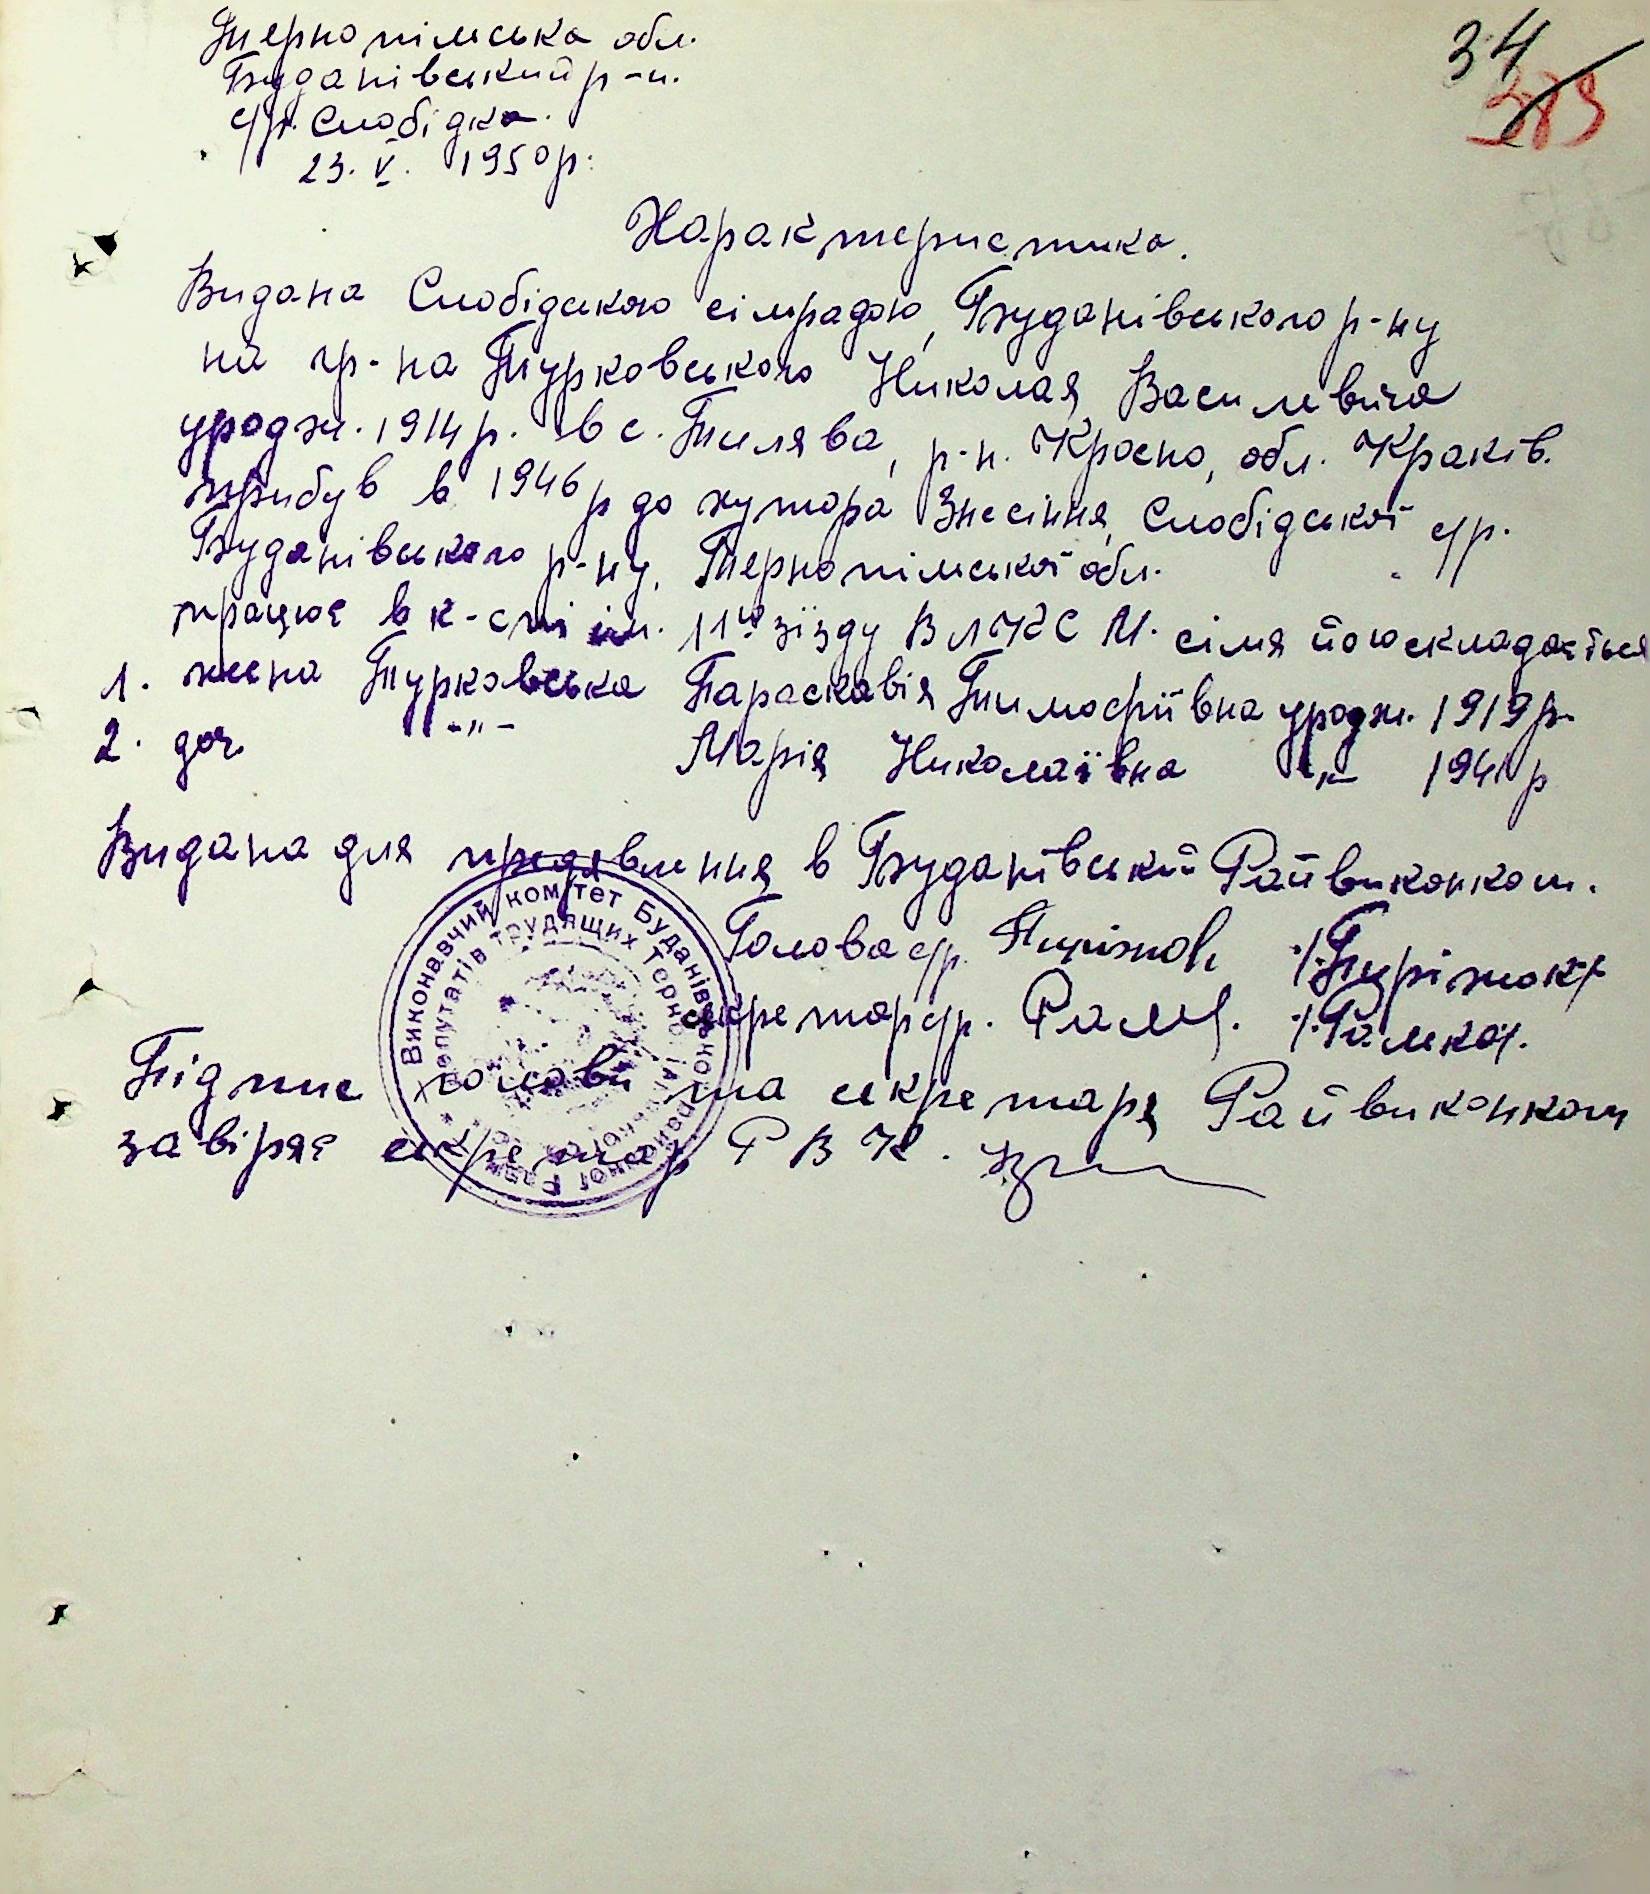 34
389
Тернопільська обл.
Буданівський р-н.
с/р. Слобідка.
23. V. 1950 р.
Характеристика.
Видана Слобідською сільрадою, Буданівського р-ну
на гр-на Турковського Николая Васильвича
уродж. 1914 р. в с. Тилява, р-н. Кросно, обл. Краків.
прибув в 1946 р до хутора Знесіння, Слобідської с/р.
Буданівського р-ну, Тернопільської обл.
працює в к-спі ім. 11го зїзду ВЛКСМ. сімя його складається
1. жена Турковська Параскавія Тимофіївна уродж. 1919 р.
2. доч. -"- Марія Николаївна -"- 1941 р
Видана для предявлення в Буданівський Райвиконком.
Голова с/р. /Пиріжок/
секретар с/р. /Галька/.
Підпис голови та секретаря Райвиконком
завіряє секретар РВК.
Виконавчий комітет Буданівської районної Ради
депутатів трудящих Тернопільської